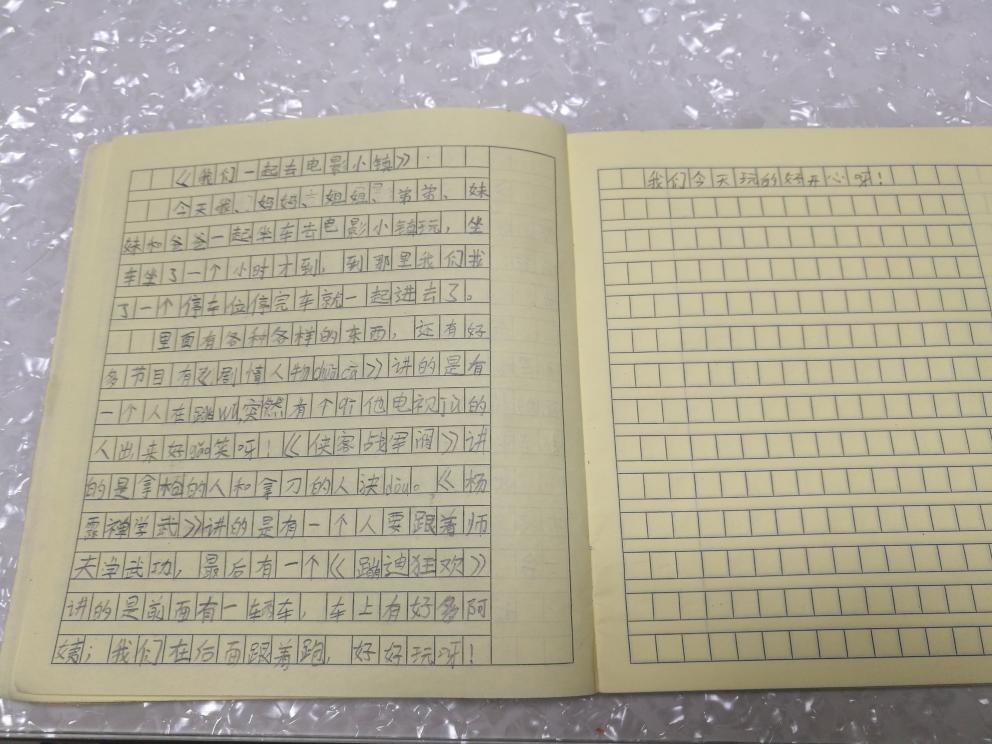 《我们一起去电影小镇》
今天我、妈妈、姐姐、弟弟、妹
妹和爸爸一起坐车去电影小镇玩，坐
车坐了一个小时才到，到那里我们找
了一个停车位停完车就一起进去了。
里面有各种各样的东西，还有好
多节目有《剧情人物》讲的是有
一个人在跳wǔ，突然有个 他电视 的
人出来好 笑呀！《侠客战军阀》讲
的是拿枪的人和拿刀的人决dòu。《杨
露禅学武》讲的是有一个人要跟着师
夫学武功，最后有一个《蹦迪狂欢》
讲的是前面有一辆车，车上有好多阿
姨；我们在后面跟着跑，好好玩呀！
我们今天玩的好开心呀！